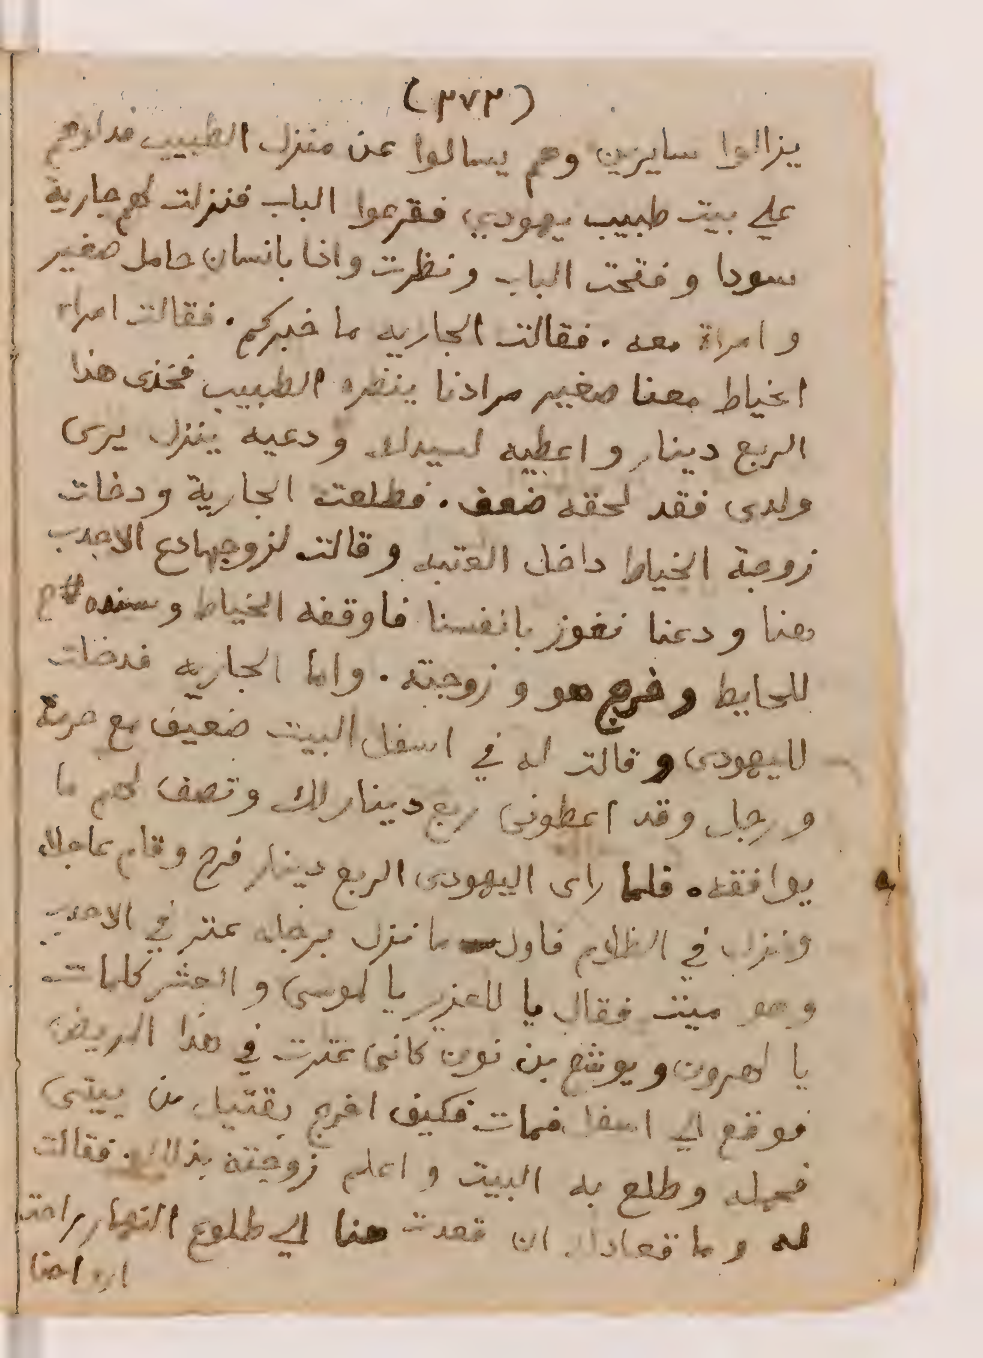 (٣٧٣)
يزالوا سايرين وهم يسالوا عن منزل الطبيب فدلوهم
علي بيت طبيب يهودي فقرعوا الباب فنزلت لهم جارية
سودا و فتحت الباب ونظرت واذا بانسان حامل صغير
و امراة معه . فقالت الجاريه ما خبركم . فقالت امراه
الخياط معنا صغير مرادنا ينظره الطبيب فخذى هذا
الربع دينار و اعطيه لسيدك ودعيه ينزل يرى
ولدى فقد لحقه ضعف . فطلعت الجارية ودخلت
زوجة الخياط داخل العتبه وقالت لزوجها دع الاحدب
هنا و دعنا نفوز بانفسنا فاوقفه الخياط و سنده
للحايط وخرج هو و زوجته . واما الجاريه فدخلت
لليهودى وقالت له في اسفل البيت ضعيف مع حرمة
و رجل وقد اعطونى ربع دينار لك وتصف لهم ما
يوافقه . فلما راى اليهودى الربع دينار فرح وقام عاجلا
ونزل في الظلام فاول ما نزل برجله عتر في الاحدب
وهو ميت فقال يا للعزير يا لموسى و العشر كلمات
يا لهرون و يوشع بن نون كانى عترت في هذا المريض
فوقع الي اسفل فمات فكيف اخرج بقتيل من بيتى
فحمله وطلع به البيت و اعلم زوجته بذلك . فقالت
له و ما قعادك ان قعدت هنا الي طلوع النهار راحت
ارواحنا